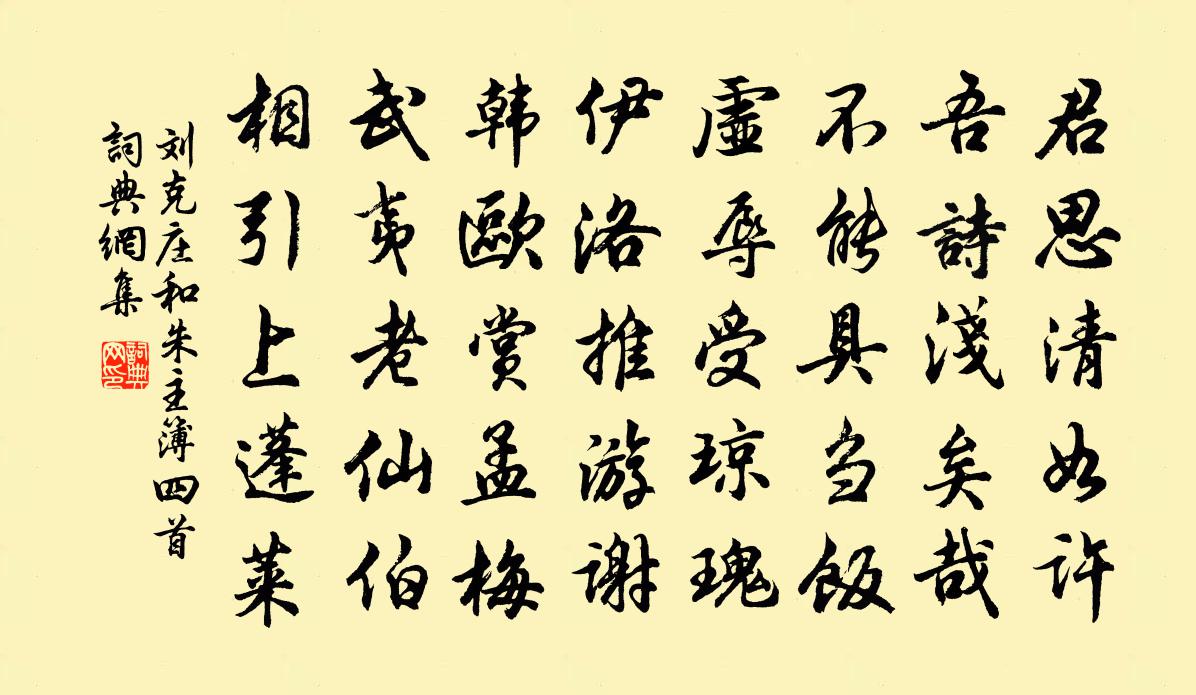 君思清如许
吾詩淺矣哉
不能具刍飯
虛辱受琼瑰
伊洛推游谢
韩歐赏孟梅
武夷老仙伯
相引上蓬莱
刘克庄和朱主簿四首
詞典網集
詞典网印